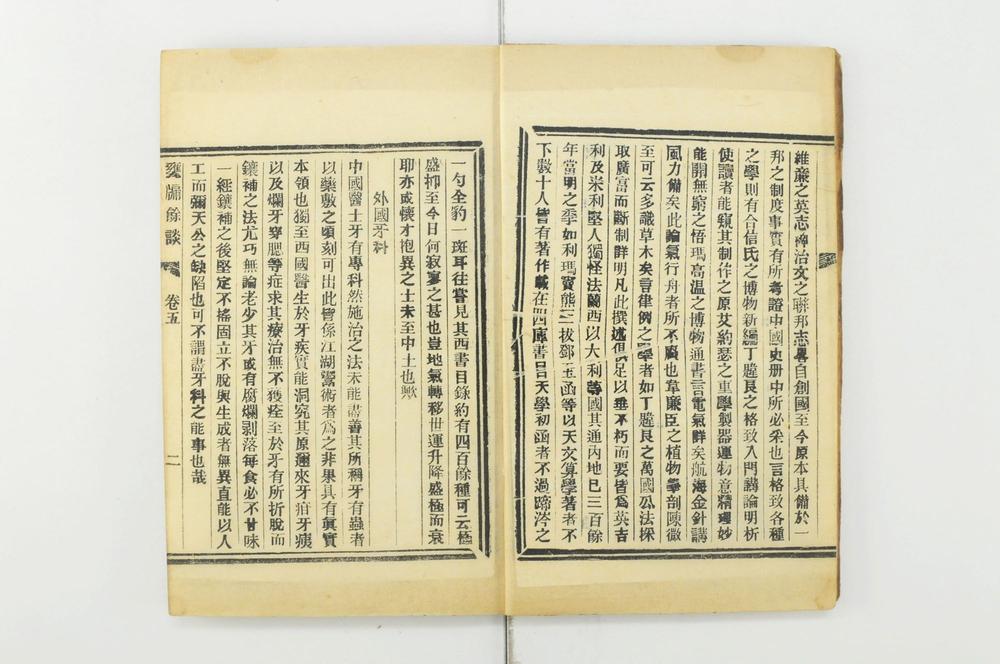 維廉之英志裨治文之聯邦志畧自創國至今原本具備於一
邦之制度事實有所考證中國史册中所必采也言格致各種
之學則有合信氏之博物新編丁韙良之格致入門講論明析
使讀者能窺其制作之原艾約瑟之重學製器運物意精理妙
能開無窮之悟瑪高温之博物通書言電氣詳矣航海金針講
風力備矣此論氣行舟者所不廢也韋廉臣之植物學剖陳微
至可云多識草木矣言律例之學者如丁韙良之萬國公法採
取廣富而斷制詳明凡此撰述俱足以垂不朽而要皆爲英吉
利及米利堅人獨怪法蘭西以大利等國其通內地已三百餘
年當明之季如利瑪竇熊三拔鄧玉函等以天文算學著者不
下數十人皆有著作載在四庫書目天學初函者不過蹄涔之
一勺全豹一斑耳往嘗見其西書目錄約有四百餘種可云極
盛抑至今日何寂寥之甚也豈地氣轉移世運升降盛極而衰
耶亦或懷才抱異之士未至中土也歟
外國牙科
中國醫士牙有專科然施治之法未能盡善其所稱牙有蟲者
以藥敷之頃刻可出此皆係江湖鬻術者爲之非果具有真實
本領也獨至西國醫生於牙疾實能洞究其原邇來牙疳牙痍
以及爛牙穿腮等症求其療治無不獲痊至於牙有所折脫而
鑲補之法尤巧無論老少其牙或有腐爛剥落每食必不甘味
一經鑲補之後堅定不搖固立不脫與生成者無異直能以人
工而彌天公之缺陷也可不謂盡牙科之能事也哉
甕牖餘談
卷五
二